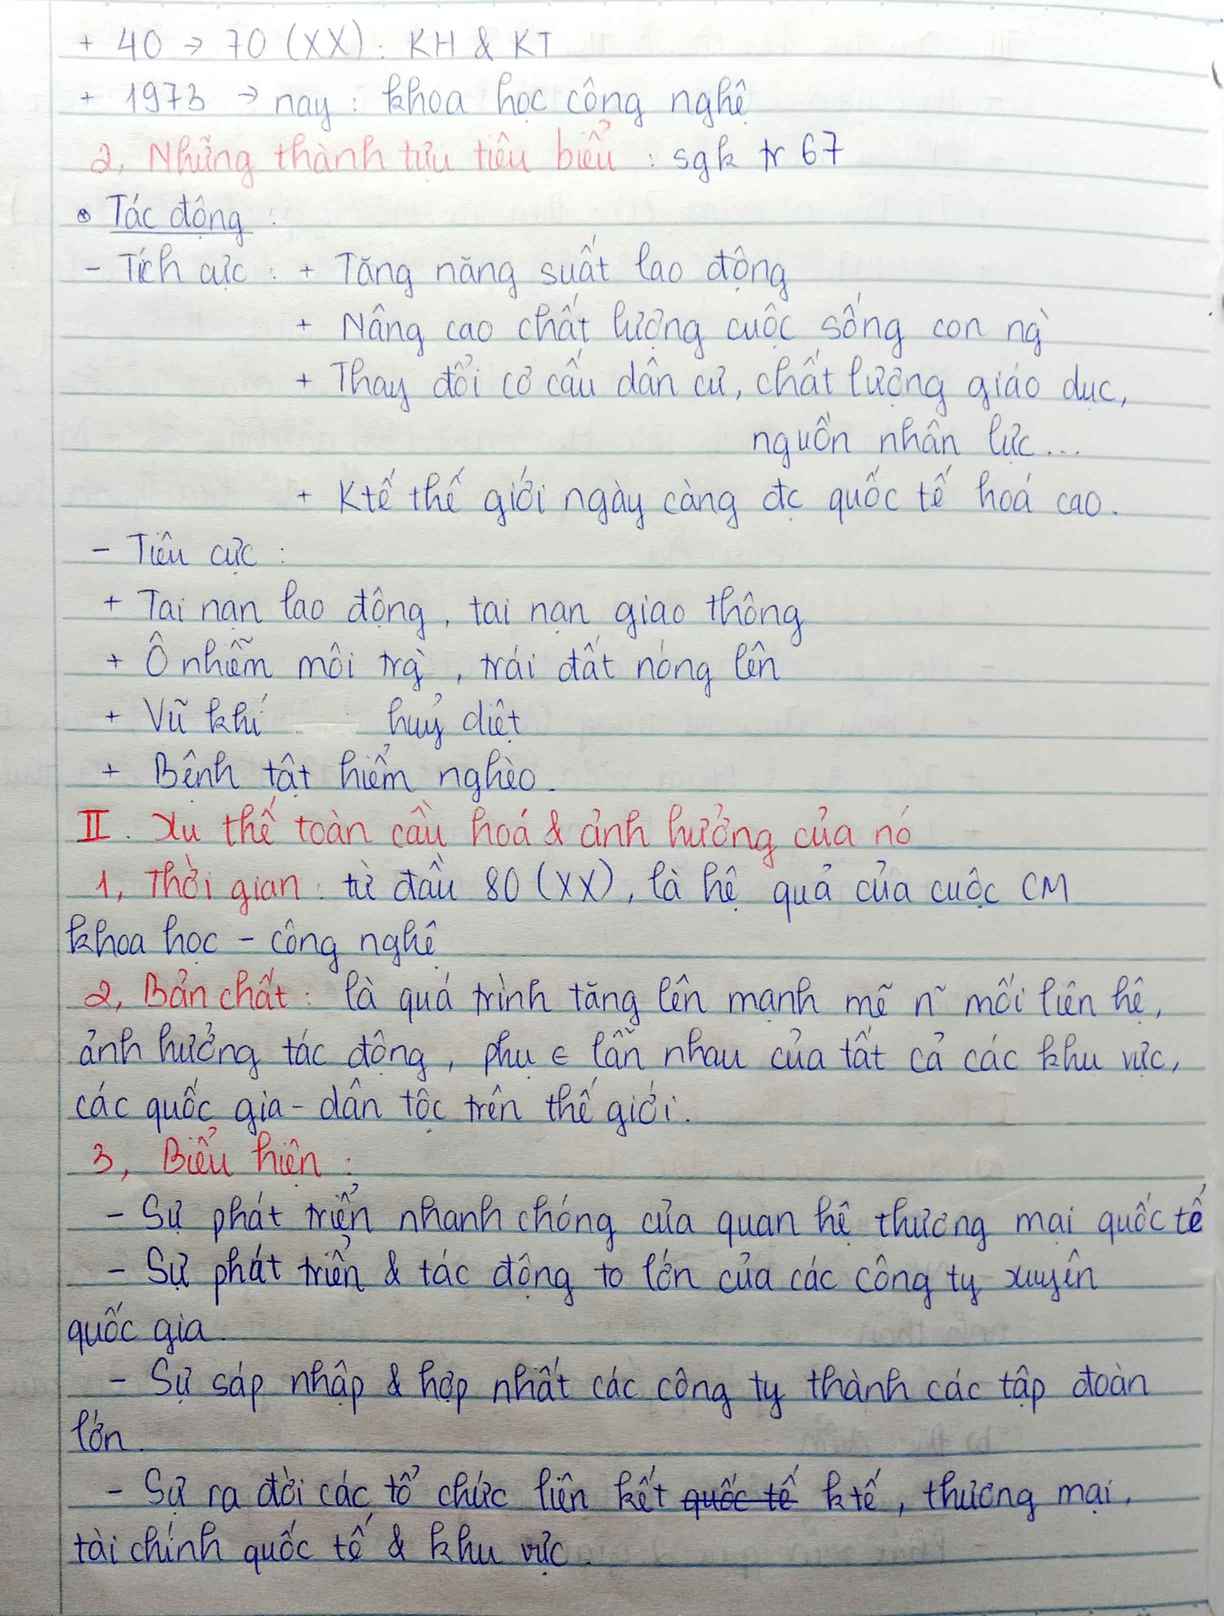 + 40 → 70 (XX) : KH & KT
+ 1973 → nay : khoa học công nghệ
2, Những thành tựu tiêu biểu : sgk tr 67
• Tác động :
- Tích cực : + Tăng năng suất lao động
+ Nâng cao chất lượng cuộc sống con ng`
+ Thay đổi cơ cấu dân cư, chất lượng giáo dục,
nguồn nhân lực...
+ Ktế thế giới ngày càng đc quốc tế hoá cao.
- Tiêu cực :
+ Tai nạn lao động, tai nạn giao thông
+ Ô nhiễm môi trg`, trái đất nóng lên
+ Vũ khí huỷ diệt
+ Bệnh tật hiểm nghèo.
II. Xu thế toàn cầu hoá & ảnh hưởng của nó
1, Thời gian : từ đầu 80 (XX), là hệ quả của cuộc CM
khoa học - công nghệ
2, Bản chất : là quá trình tăng lên mạnh mẽ n~ mối liên hệ,
ảnh hưởng tác động, phụ ∈ lẫn nhau của tất cả các khu vực,
các quốc gia - dân tộc trên thế giới.
3, Biểu hiện :
- Sự phát triển nhanh chóng của quan hệ thương mại quốc tế
- Sự phát triển & tác động to lớn của các công ty xuyên
quốc gia.
- Sự sáp nhập & hợp nhất các công ty thành các tập đoàn
lớn.
- Sự ra đời các tổ chức liên kết quốc tế ktế, thương mại,
tài chính quốc tế & khu vực.